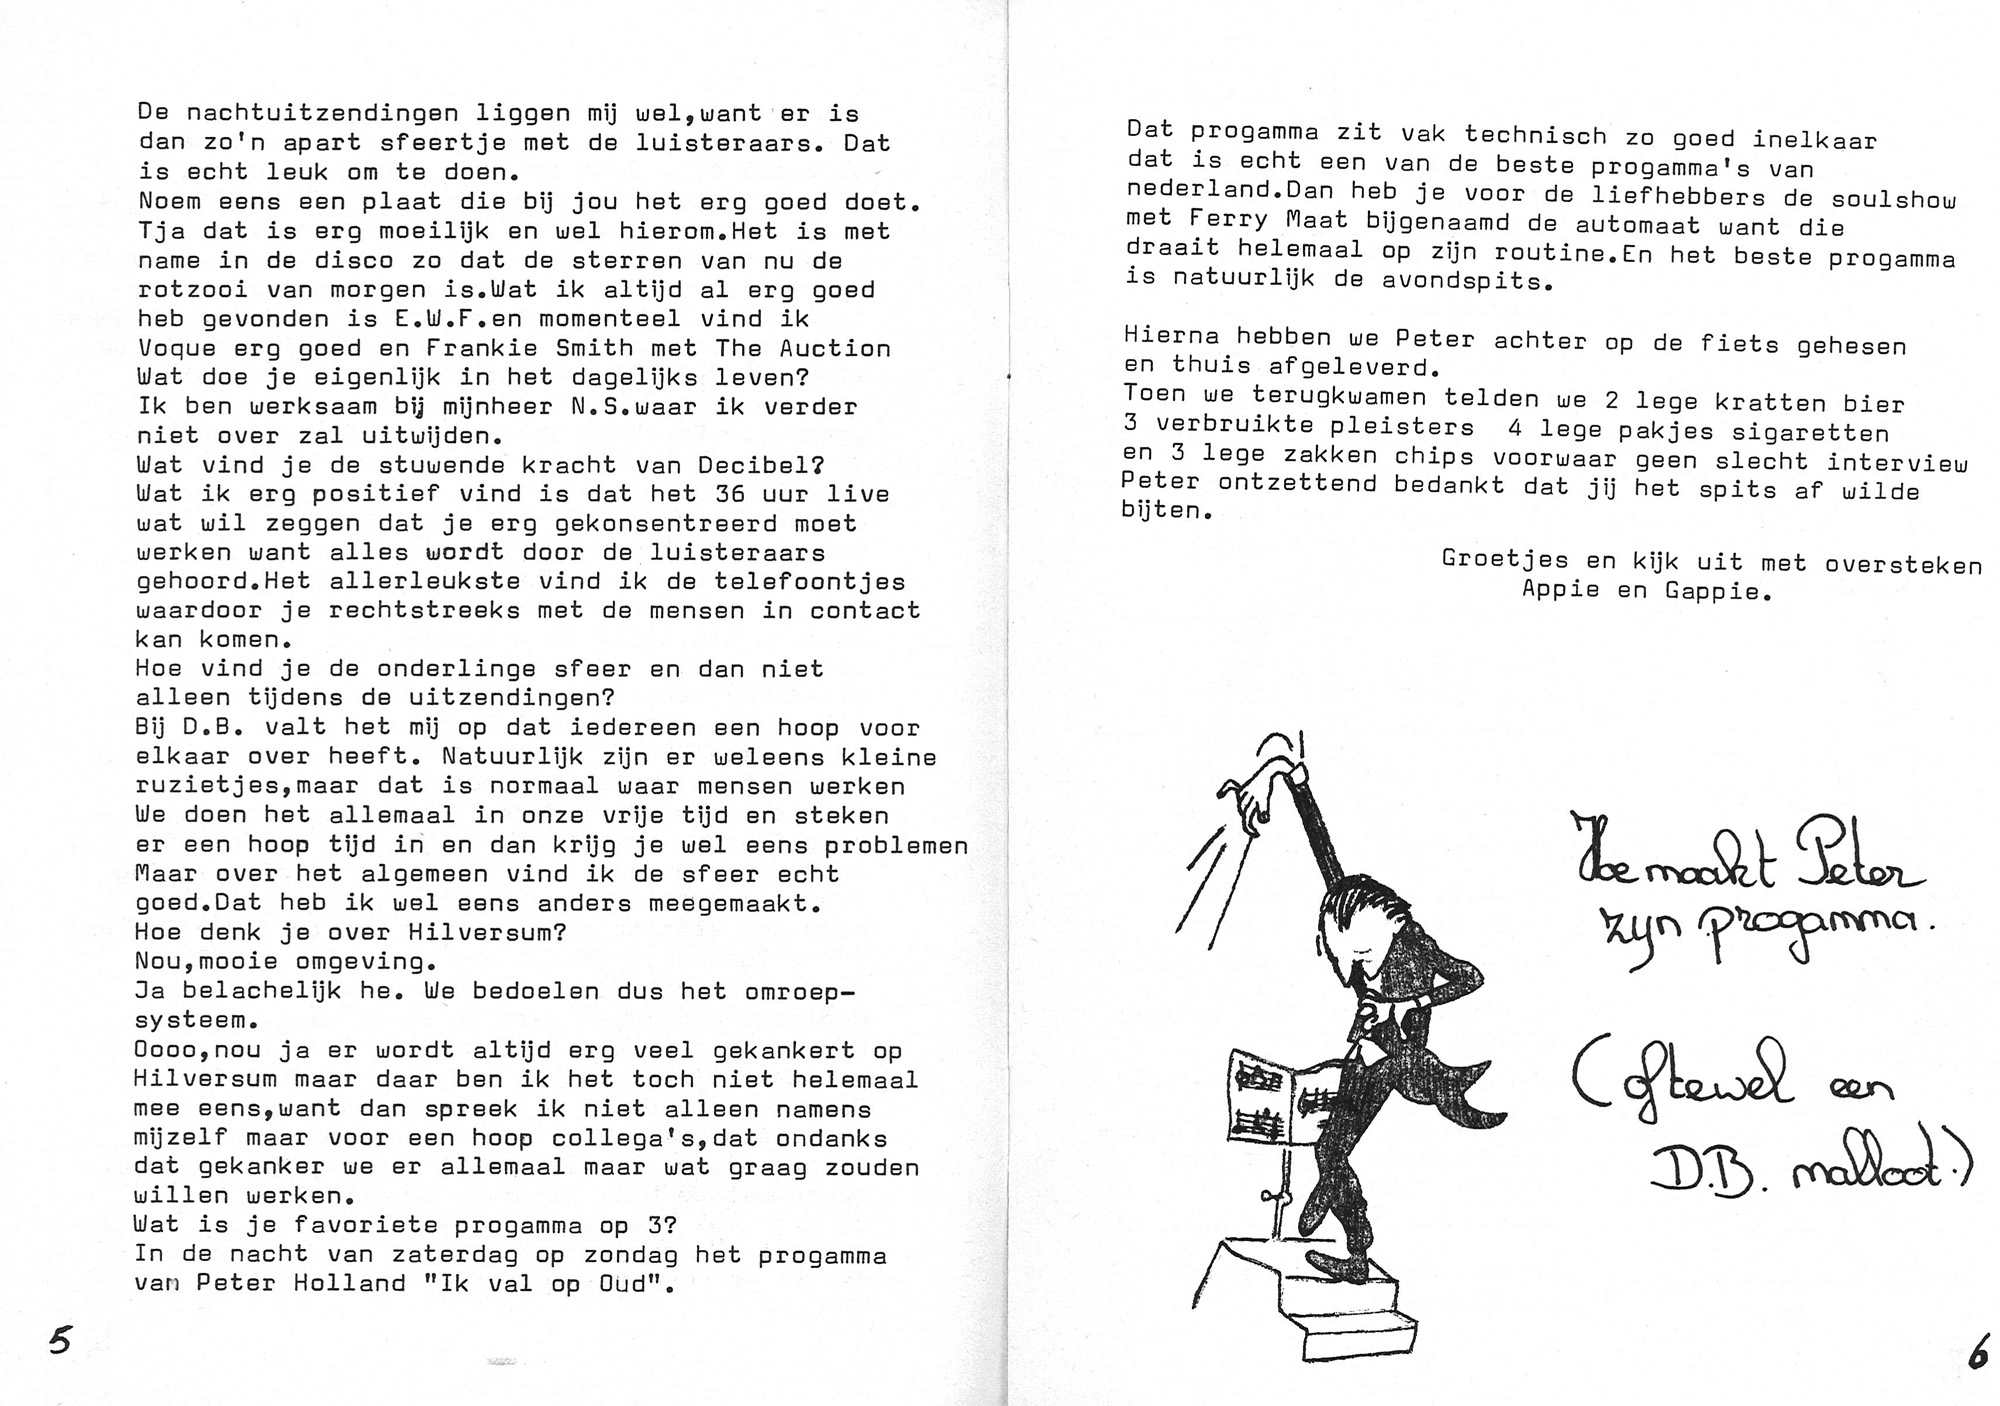 De nachtuitzendingen liggen mij wel,want er is
dan zo'n apart sfeertje met de luisteraars. Dat
is echt leuk om te doen.
Noem eens een plaat die bij jou het erg goed doet.
Tja dat is erg moeilijk en wel hierom.Het is met
name in de disco zo dat de sterren van nu de
rotzooi van morgen is.Wat ik altijd al erg goed
heb gevonden is E.W.F.en momenteel vind ik
Voque erg goed en Frankie Smith met The Auction
Wat doe je eigenlijk in het dagelijks leven?
Ik ben werksaam bij mijnheer N.S.waar ik verder
niet over zal uitwijden.
Wat vind je de stuwende kracht van Decibel?
Wat ik erg positief vind is dat het 36 uur live
wat wil zeggen dat je erg gekonsentreerd moet
werken want alles wordt door de luisteraars
gehoord.Het allerleukste vind ik de telefoontjes
waardoor je rechtstreeks met de mensen in contact
kan komen.
Hoe vind je de onderlinge sfeer en dan niet
alleen tijdens de uitzendingen?
Bij D.B. valt het mij op dat iedereen een hoop voor
elkaar over heeft. Natuurlijk zijn er weleens kleine
ruzietjes,maar dat is normaal waar mensen werken
We doen het allemaal in onze vrije tijd en steken
er een hoop tijd in en dan krijg je wel eens problemen
Maar over het algemeen vind ik de sfeer echt
goed.Dat heb ik wel eens anders meegemaakt.
Hoe denk je over Hilversum?
Nou,mooie omgeving.
Ja belachelijk he. We bedoelen dus het omroep-
systeem.
Oooo,nou ja er wordt altijd erg veel gekankert op
Hilversum maar daar ben ik het toch niet helemaal
mee eens,want dan spreek ik niet alleen namens
mijzelf maar voor een hoop collega's,dat ondanks
dat gekanker we er allemaal maar wat graag zouden
willen werken.
Wat is je favoriete progamma op 3?
In de nacht van zaterdag op zondag het progamma
van Peter Holland "Ik val op Oud".
5
Dat progamma zit vak technisch zo goed inelkaar
dat is echt een van de beste progamma's van
nederland.Dan heb je voor de liefhebbers de soulshow
met Ferry Maat bijgenaamd de automaat want die
draait helemaal op zijn routine.En het beste progamma
is natuurlijk de avondspits.
Hierna hebben we Peter achter op de fiets gehesen
en thuis afgeleverd.
Toen we terugkwamen telden we 2 lege kratten bier
3 verbruikte pleisters  4 lege pakjes sigaretten
en 3 lege zakken chips voorwaar geen slecht interview
Peter ontzettend bedankt dat jij het spits af wilde
bijten.
Groetjes en kijk uit met oversteken
Appie en Gappie.
Hoe maakt Peter
zijn progamma.
(oftewel een
D.B. malloot.)
6